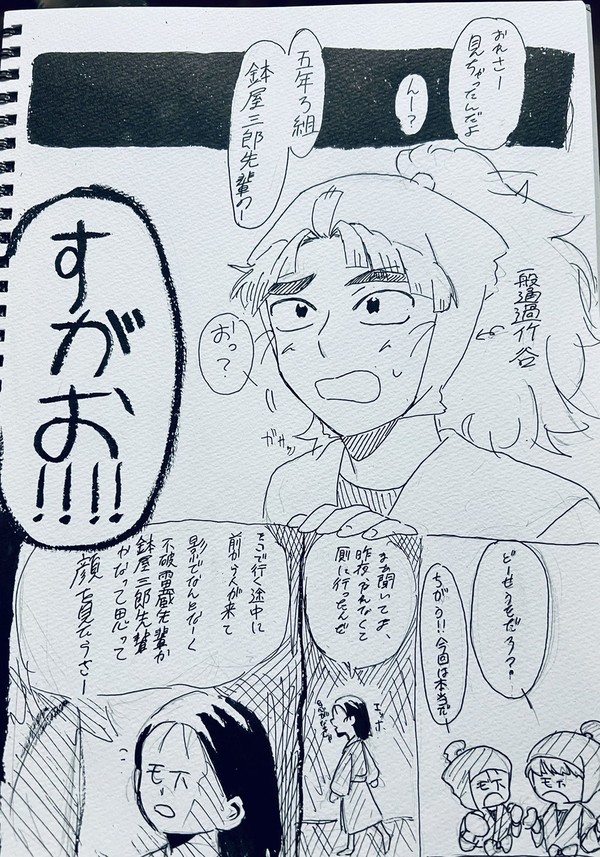 おれさー
見ちゃったんだよ
んー?
五年ろ組
鉢屋三郎先輩の
すがお!!!!
一般通過竹谷
おっ?
ガサッ
どせうそだろ?
ちがう!!今回は本当だ
まぁ聞いてよ、
昨夜
厠に行ったんだ
そこで行く途中に
前から人が来て
影でなんとなーく
不破雷蔵先輩か
鉢屋三郎先輩
かなって思って
顔を見たらさー
モブ
モブ
モブ